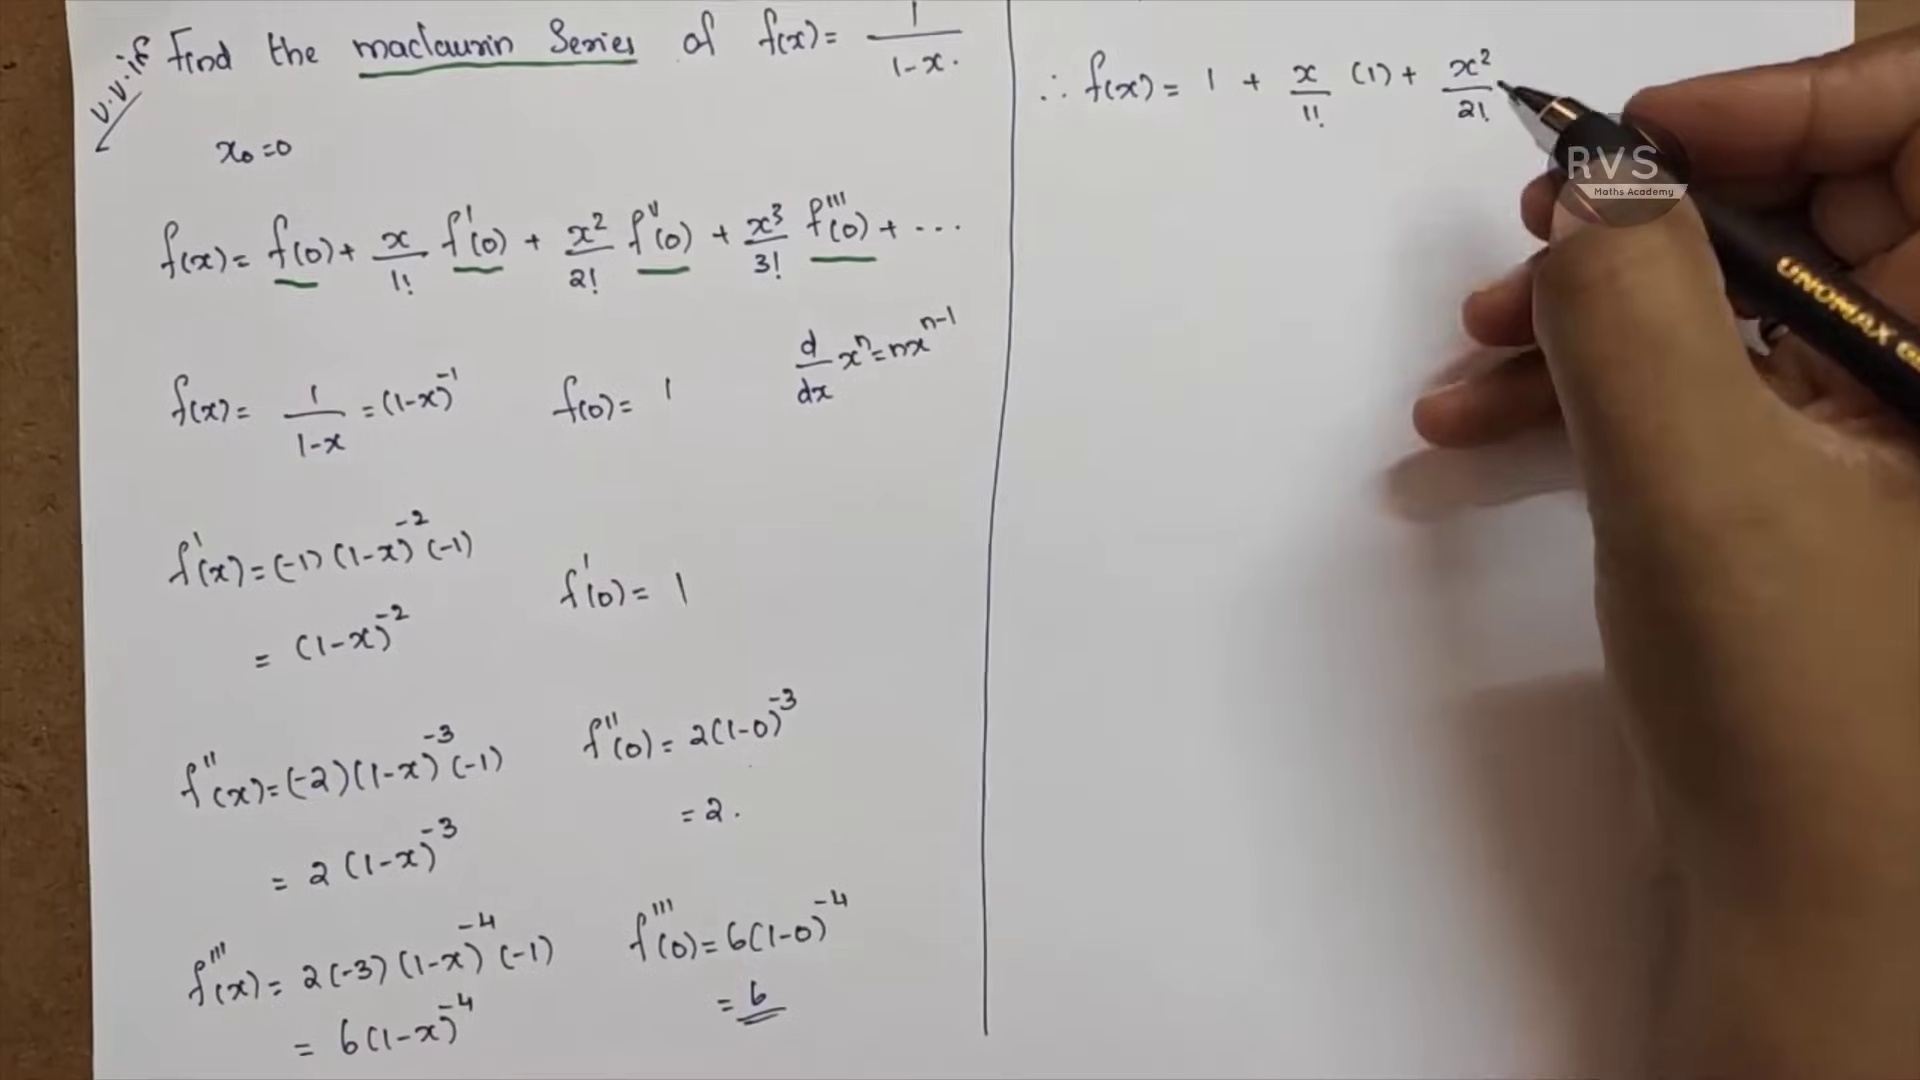 v.v.if Find the maclaurin Series of f(x) = 1/(1-x).
x₀=0
f(x) = f(0) + x/1! f'(0) + x²/2! f''(0) + x³/3! f'''(0) + ...
f(x) = 1/(1-x) = (1-x)⁻¹ f(0) = 1 d/dx xⁿ = nxⁿ⁻¹
f'(x) = (-1) (1-x)⁻² (-1)
= (1-x)⁻² f'(0) = 1
f''(x) = (-2)(1-x)⁻³ (-1) f''(0) = 2(1-0)⁻³
= 2 (1-x)⁻³ = 2.
f'''(x) = 2(-3) (1-x)⁻⁴ (-1) f'''(0) = 6(1-0)⁻⁴
= 6(1-x)⁻⁴ = 6
∴ f(x) = 1 + x/1! (1) + x²/2!
RVS
Maths Academy
UNOMAX